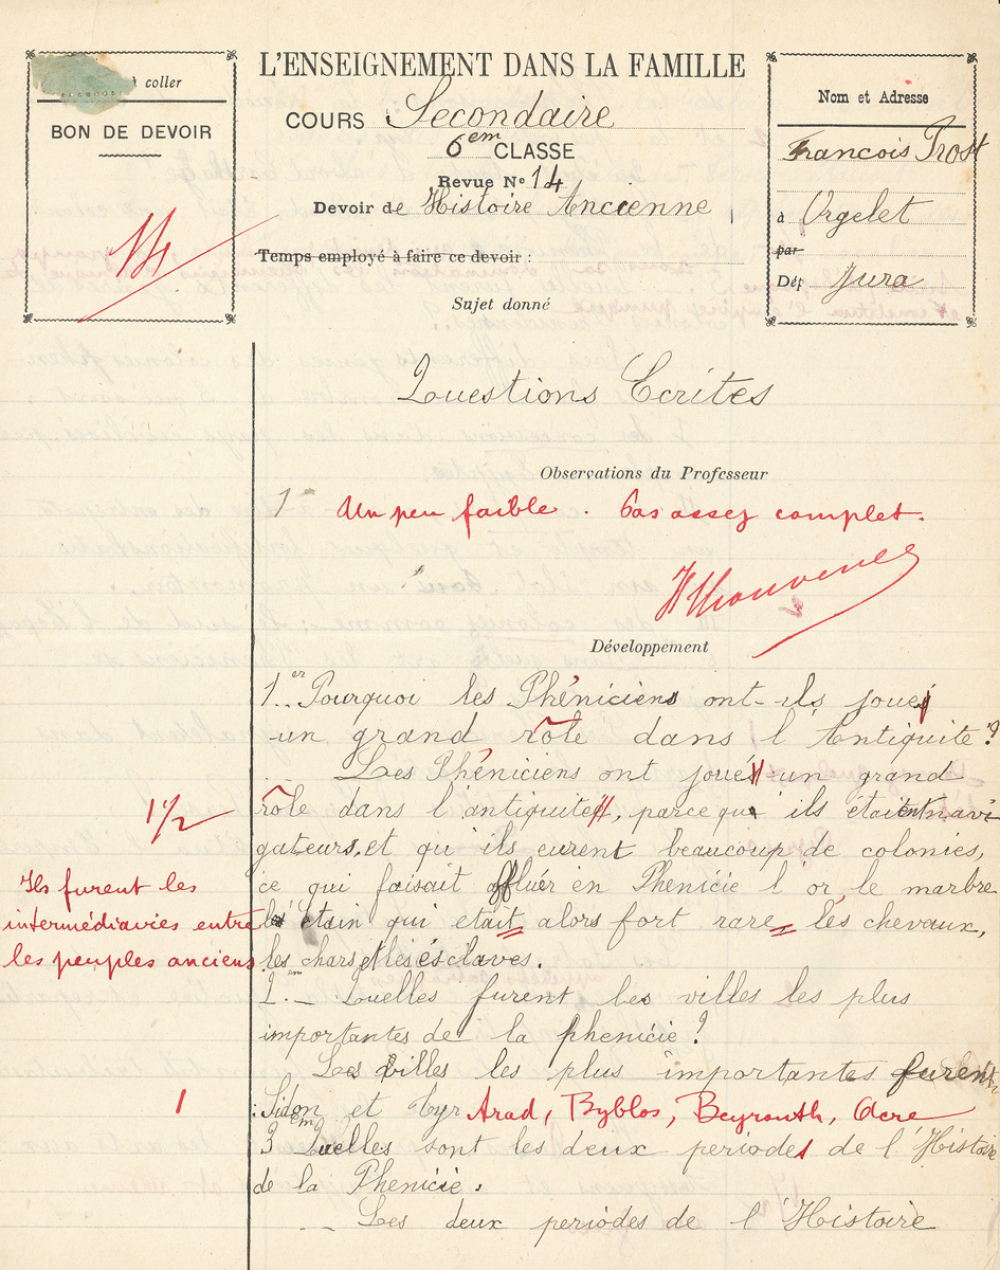 à coller
BON DE DEVOIR
14
L'ENSEIGNEMENT DANS LA FAMILLE
COURS Secondaire
6em CLASSE
Revue No 14
Devoir de Histoire Ancienne
Temps employé à faire ce devoir :
Sujet donné
Nom et Adresse
Francois Trost
à Orgelet
par
Dép Jura
Questions Ecrites
Observations du Professeur
Un peu faible. Pas assez complet.
Développement
1er.. Pourquoi les Phéniciens ont-ils joué
un grand rôle dans l'Antiquite ?
Les Phéniciens ont joué un grand
rôle dans l'antiquité, parce qu'ils etaient navi
gateurs, et qu'ils eurent beaucoup de colonies,
ce qui faisait affluér en Phenicie l'or, le marbre
l'étain qui etait alors fort rare, les chevaux,
les chars et les ésclaves.
1 1/2
Ils furent les
intermédiaires entre
les peuples anciens
2em.- Quelles furent les villes les plus
importantes de la phenicie ?
Les villes les plus importantes furent
: Sidon et tyr Arad, Byblos, Beyrouth, Acre
1
3em Quelles sont les deux periodes de l'Histoire
de la Phenicie.
- Les deux periodes de l'Histoire